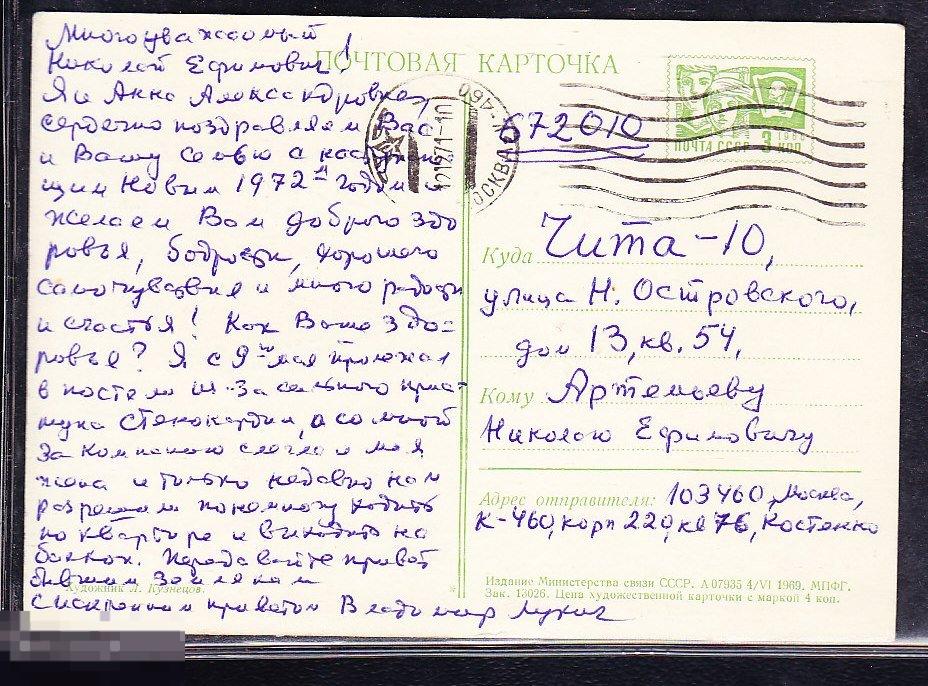 Многоуважаемый
Николай Ефимович!
Я и Анна Александровна,
сердечно поздравляем Вас
и Вашу семью с наступаю-
щим Новым 1972 м годом и
желаем Вам доброго здо
ровья, бодрости, хорошего
самочувствия и много радости
и счастья! Как Ваше здо-
ровье? Я с 9 мая пролежал
в постели из-за сильного прис-
тупа стенокардии, а со мной
за компанию слегла и моя
жена и только недавно нам
разрешили понемногу ходить
по квартире и выходить на
балкон. Передавайте привет
бывшим землякам
С искренним приветом Владимир Лукич
Художник Л. Кузнецов.
ПОЧТОВАЯ КАРТОЧКА
ПОЧТА СССР 3 коп
МОСКВА К-460
672010
Куда Чита-10,
улица Н. Островского,
дом 13, кв. 54,
Кому Артемьеву
Николаю Ефимовичу
Адрес отправителя: 103460, Москва,
К-460, корп 220, кв 76, Костенко
Издание Министерства связи СССР. А 07935 4/VI 1969. МПФГ.
Зак. 13026. Цена художественной карточки с маркой 4 коп.